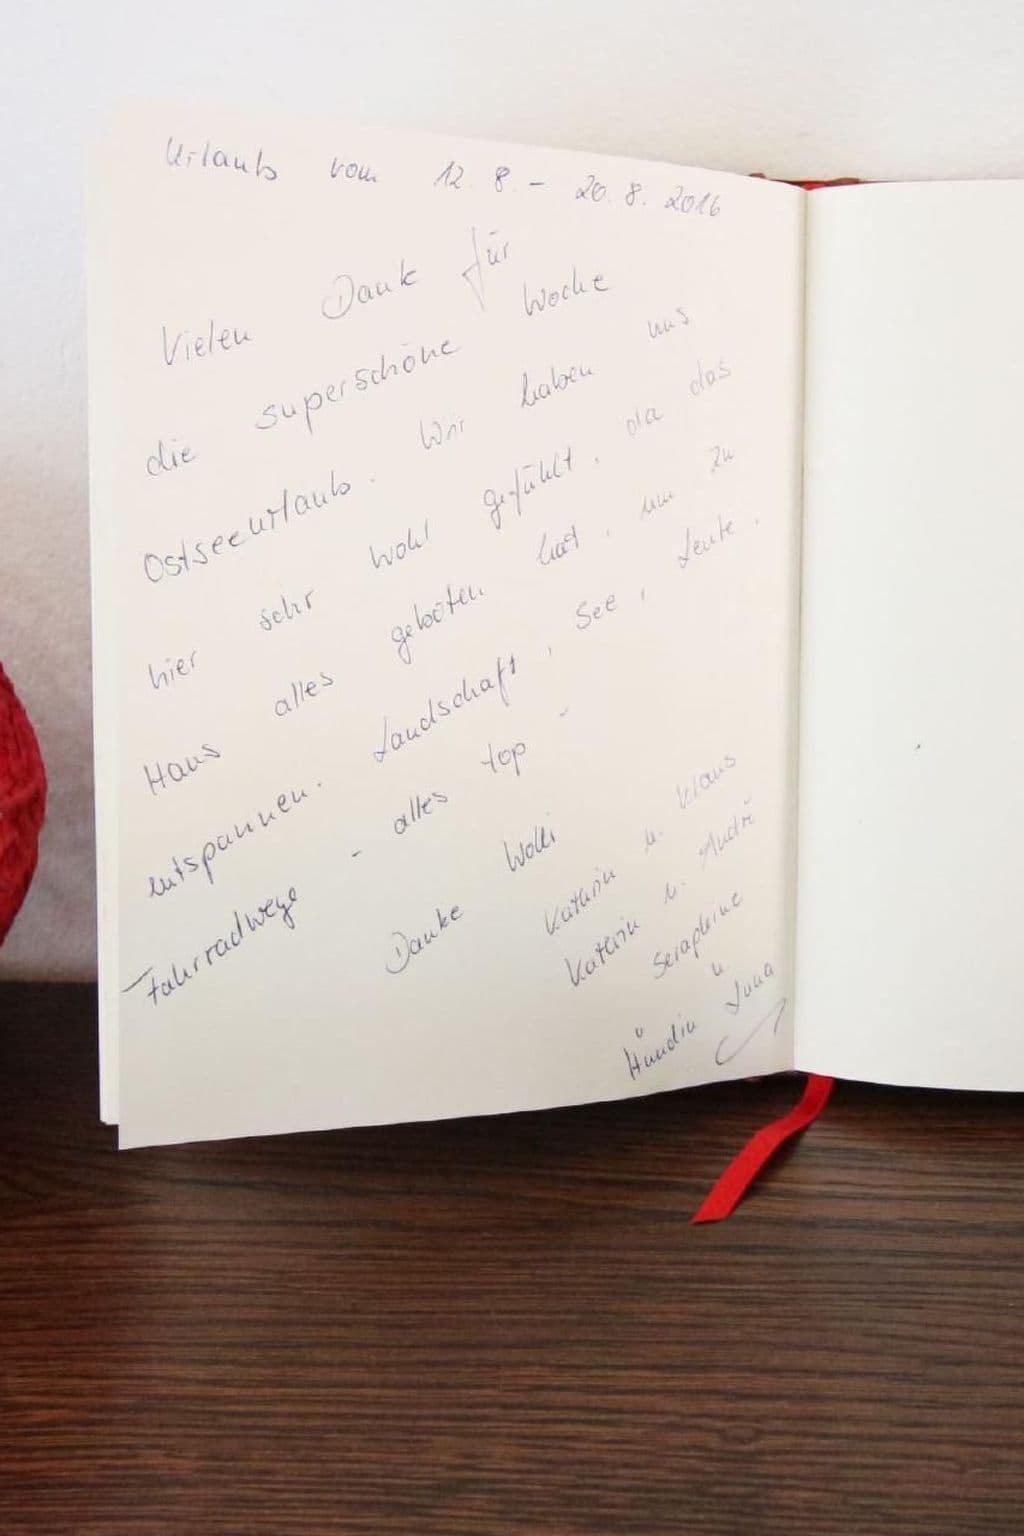 Urlaub vom 12.8. - 20.8.2016
Vielen Dank für
die superschöne Woche
Ostseeurlaub. Wir haben uns
hier sehr wohl gefühlt, da das
Haus alles geboten hat, um zu
entspannen. Landschaft, See, Leute,
Fahrradwege - alles top -
Danke Wolli
Kathrin u. Klaus
Kathrin u. André
Seraphine
u.
Hündin Luna